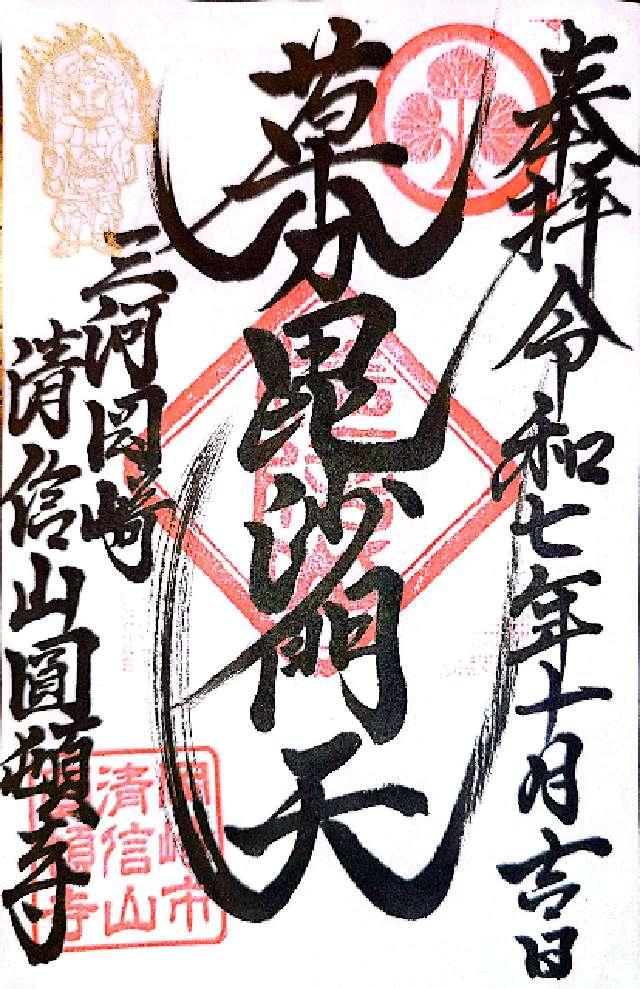 奉拝令和七年十月吉日
草分毘沙門天
三河岡崎
清信山圓頓寺
岡崎市
清信山
圓頓寺